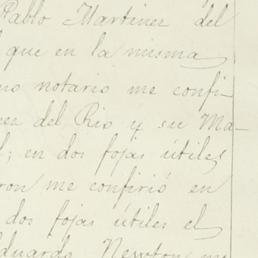 Pablo Martinez del
que en la misma
no notario me confi-
nez del Rio y su Ma-
l; en dos fojas útiles
ron me confirió en
dos fojas útiles el
Eduardo Newton, mu